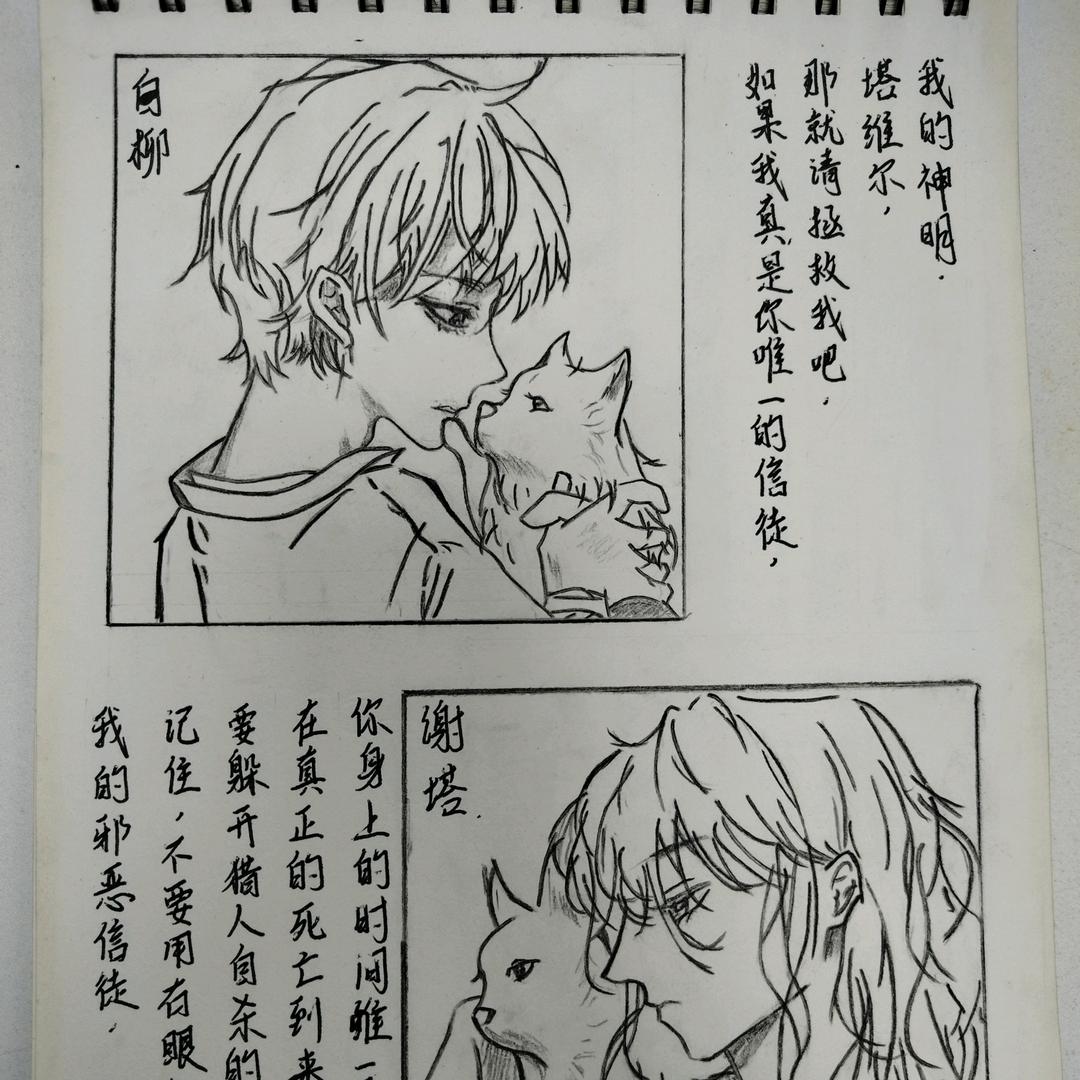 白柳
如果我真是你唯一的信徒，
那就请拯救我吧.
塔维尔，
我的神明.
谢塔.
我的邪恶信徒.
记住，不要用右眼
要躲开猎人自杀的
在真正的死亡到来
你身上的时间唯一